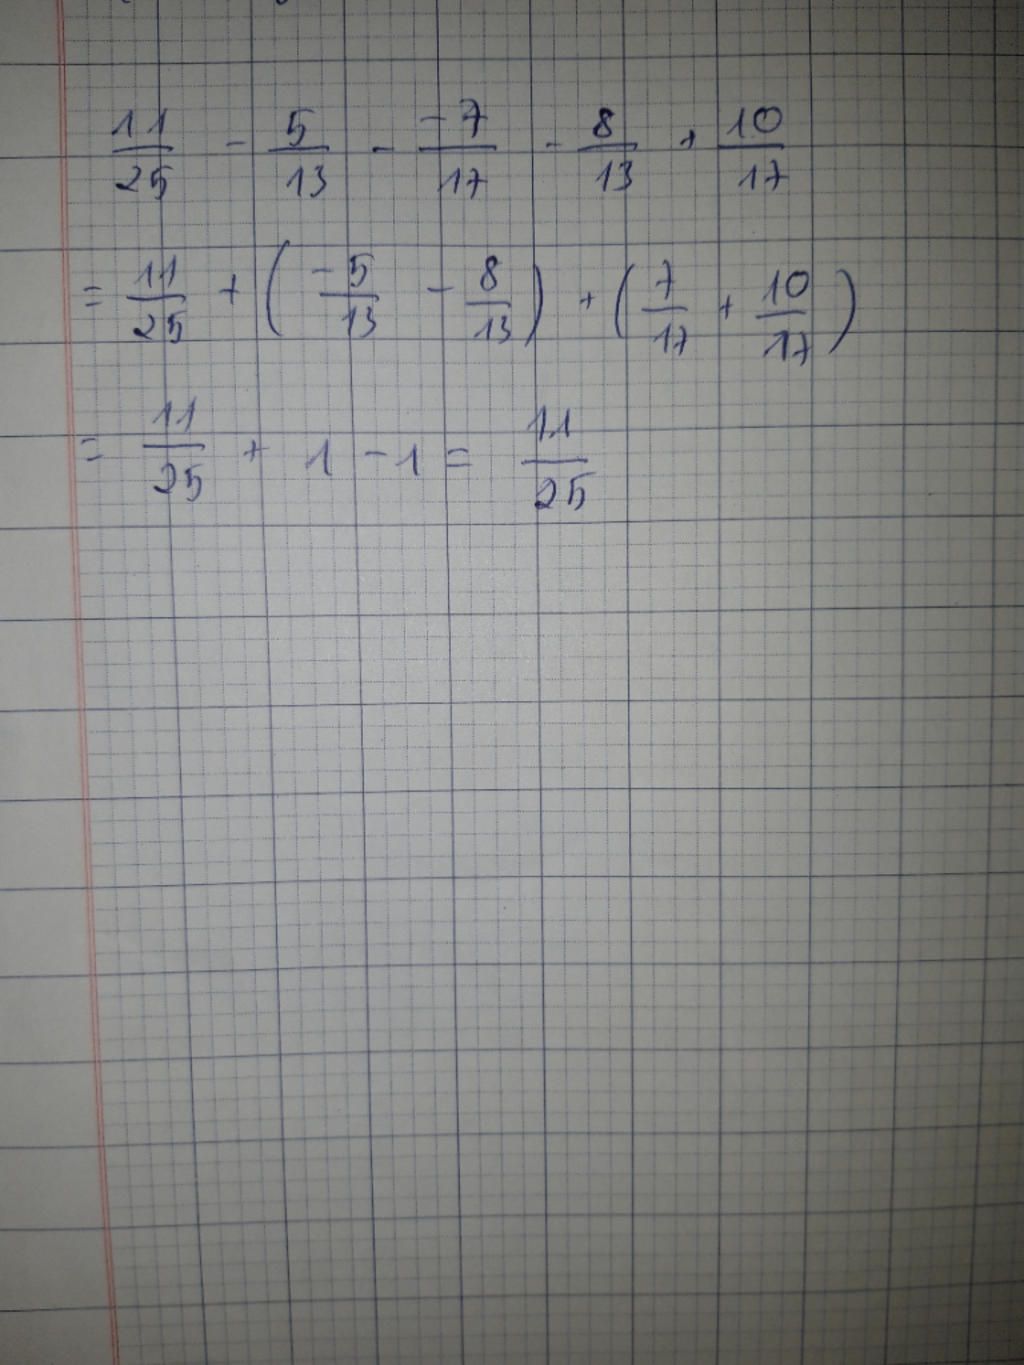 11/25 - 5/13 - -7/17 - 8/13 + 10/17
= 11/25 + (-5/13 - 8/13) + (7/17 + 10/17)
= 11/25 + 1 - 1 = 11/25